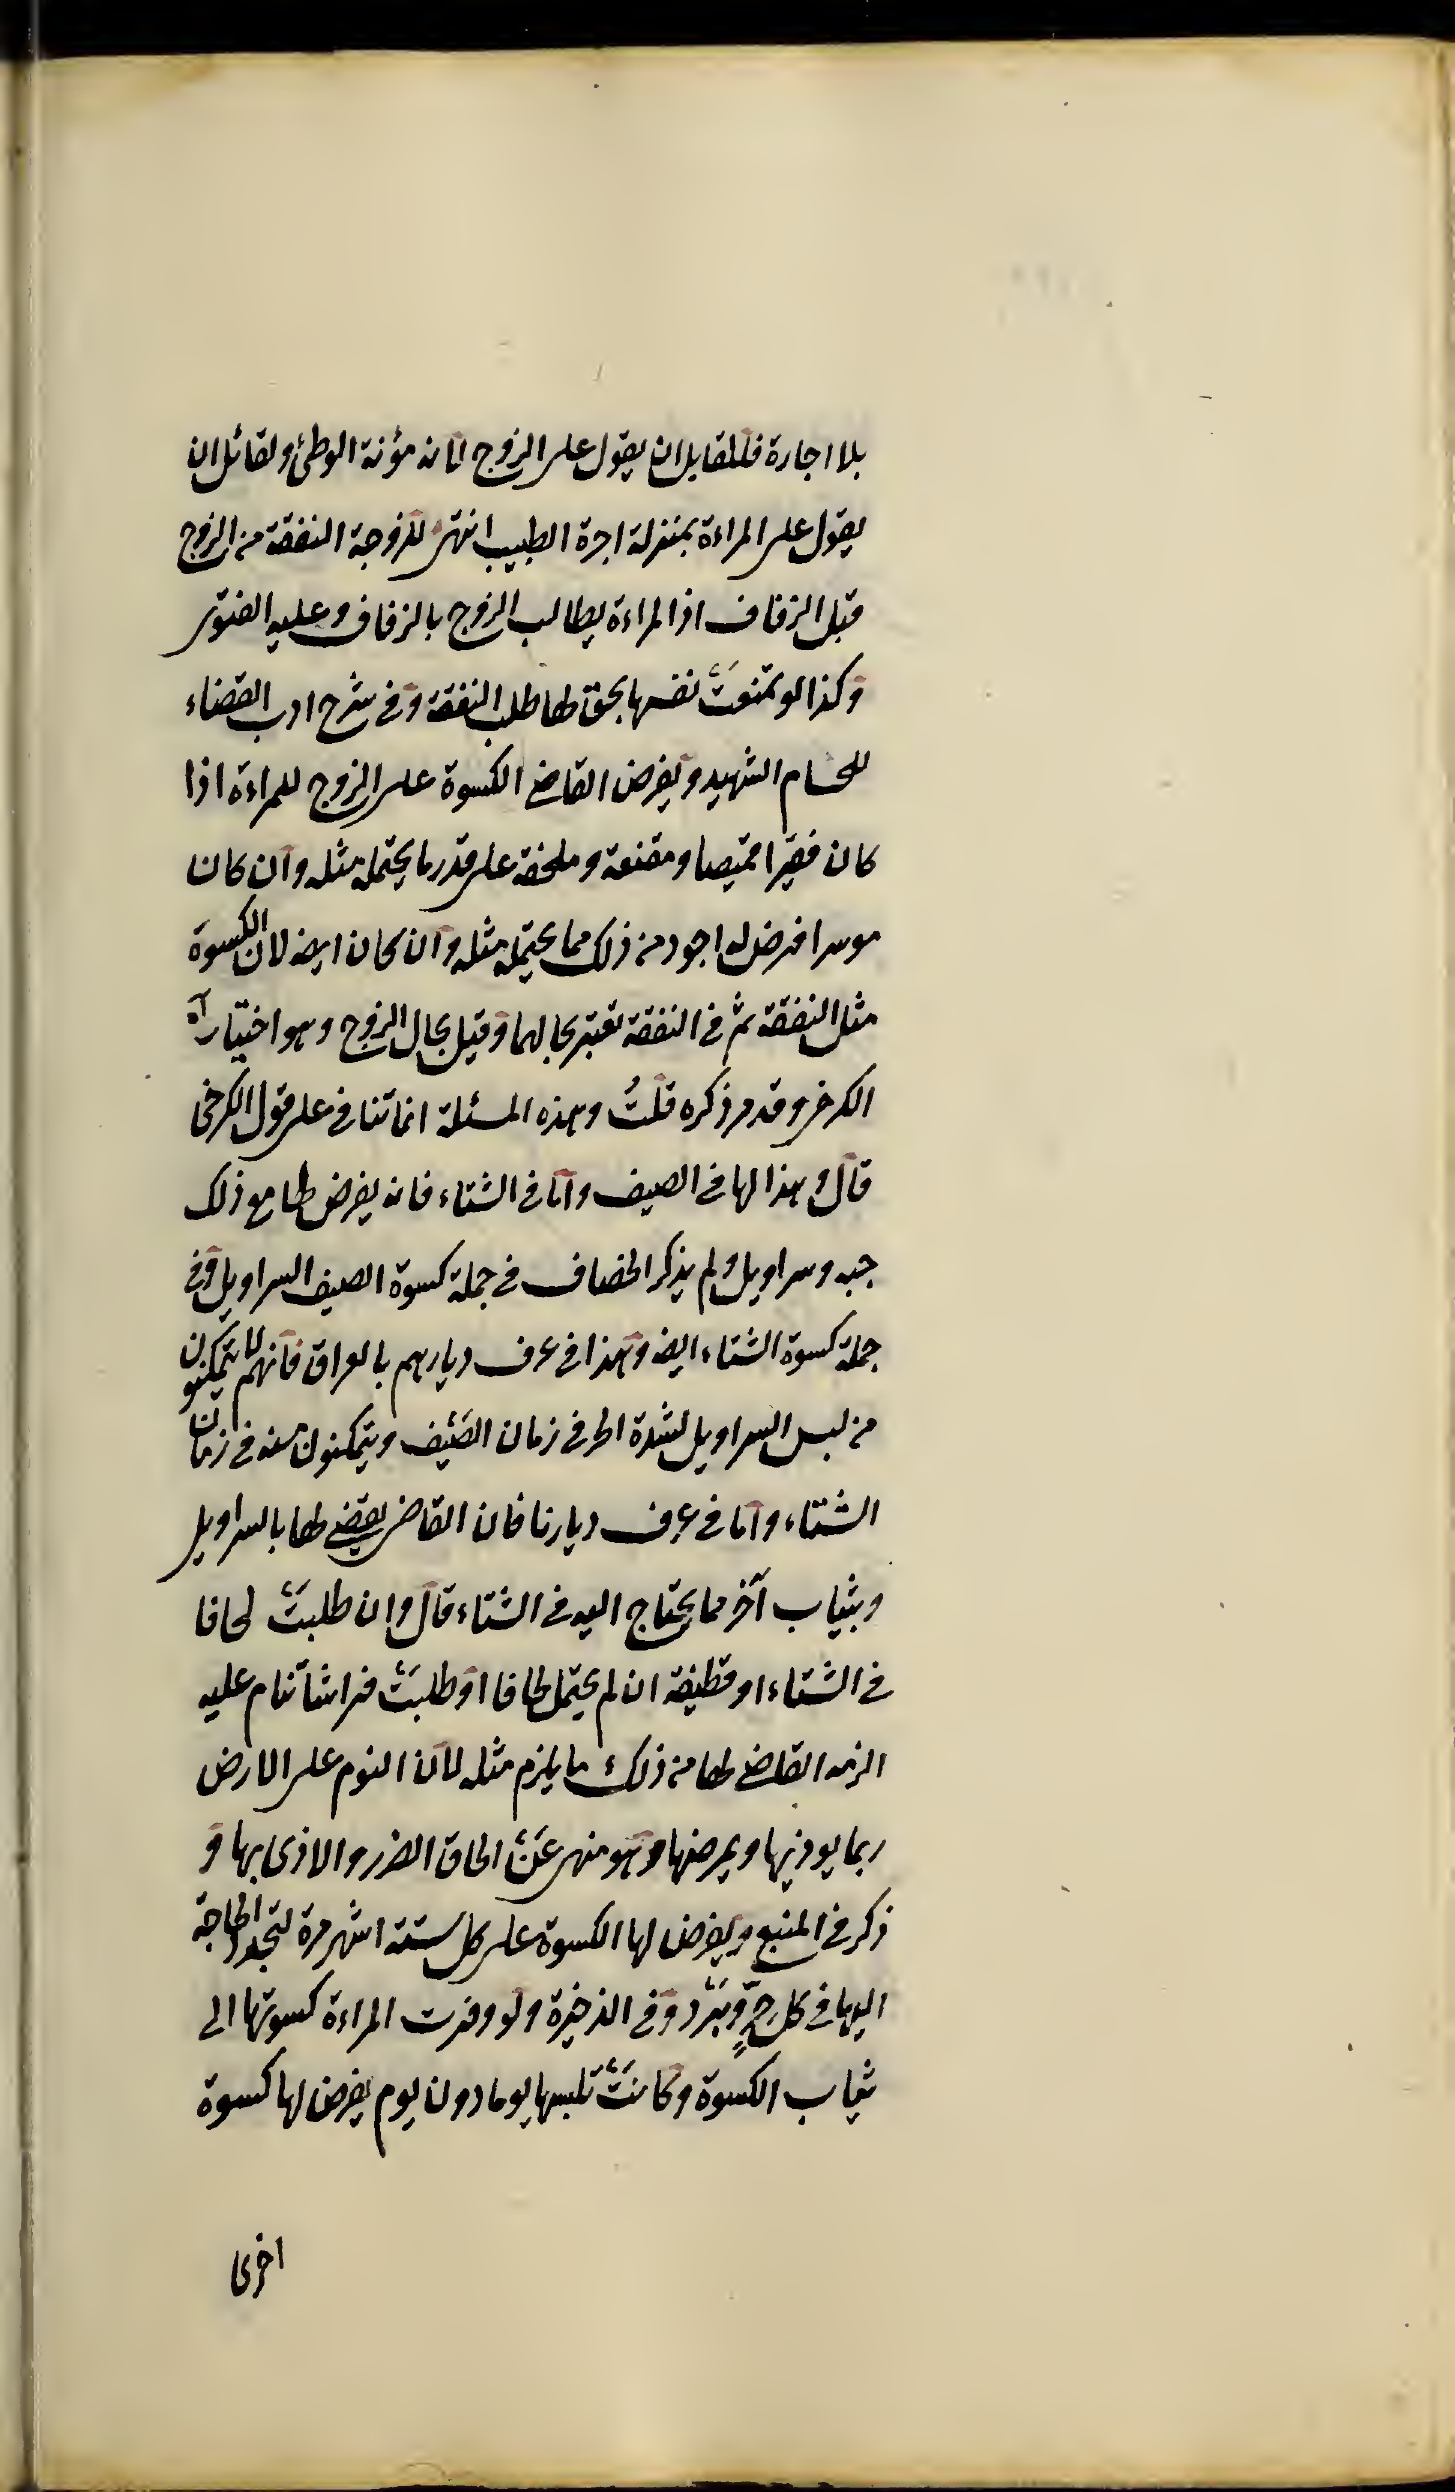 بلا اجارة فللقايل ان يقول على الزوج لانه مؤنة الوطئ ولقائل ان
يقول على المراءة بمنزلة اجرة الطبيب انتهى للزوجة النفقة من الزوج
قبل الزفاف اذا لمراءة يطالب الزوج بالزفاف وعليه الفتوى
وكذا لو تمنعت نفسها بحق لها طلب النفقة وفى شرح ادب القضاء
للحسام الشهيد ويفرض القاضى الكسوة على الزوج للمراءة اذا
كان فقيرا قميصا ومقنعة وملحفة على قدر ما يحتمله مثله وان كان
موسرا فرض له اجود من ذلك مما يحتمله مثله وان كان ايضه لان الكسوة
مثل النفقة ثم فى النفقة تعتبر بحالهما وقيل بحال الزوج وهو اختيار
الكرخى وقد مر ذكره قلت وهذه المسئلة انما تنافى على قول الكرخى
قال وهذا لها فى الصيف واما فى الشتاء فانه يفرض لها مع ذلك
جبه وسراويل ولم يذكر الخصاف فى جملة كسوة الصيف السراويل وفى
جملة كسوة الشتاء ايضه وهذا فى عرف ديارهم بالعراق فانهم لا يتمكنون
من لبس السراويل لشدة الحر فى زمان الصيف ويتمكنون منه فى زمان
الشتاء واما فى عرف ديارنا فان القاضى يقضى لها بالسراويل
وبثياب آخر مما يحتاج اليه فى الشتاء قال وان طلبت لحافا
فى الشتاء او قطيفة ان لم يحتمل لحافا او طلبت فراشا تنام عليه
الزمه القاضى لها من ذلك ما يلزم مثله لان النوم على الارض
ربما يوذيها ويمرضها وهو منهى عن الحاق الضرر والاذى بها و
ذكر فى المنبع ويفرض لها الكسوة على كل ستة اشهر مرة لتجدد الحاجة
اليها فى كل حر وبرد وفى الذخيرة ولو وفرت المراءة كسوتها الى
ثياب الكسوة وكانت تلبسها يوما دون يوم يفرض لها كسوة
اخرى